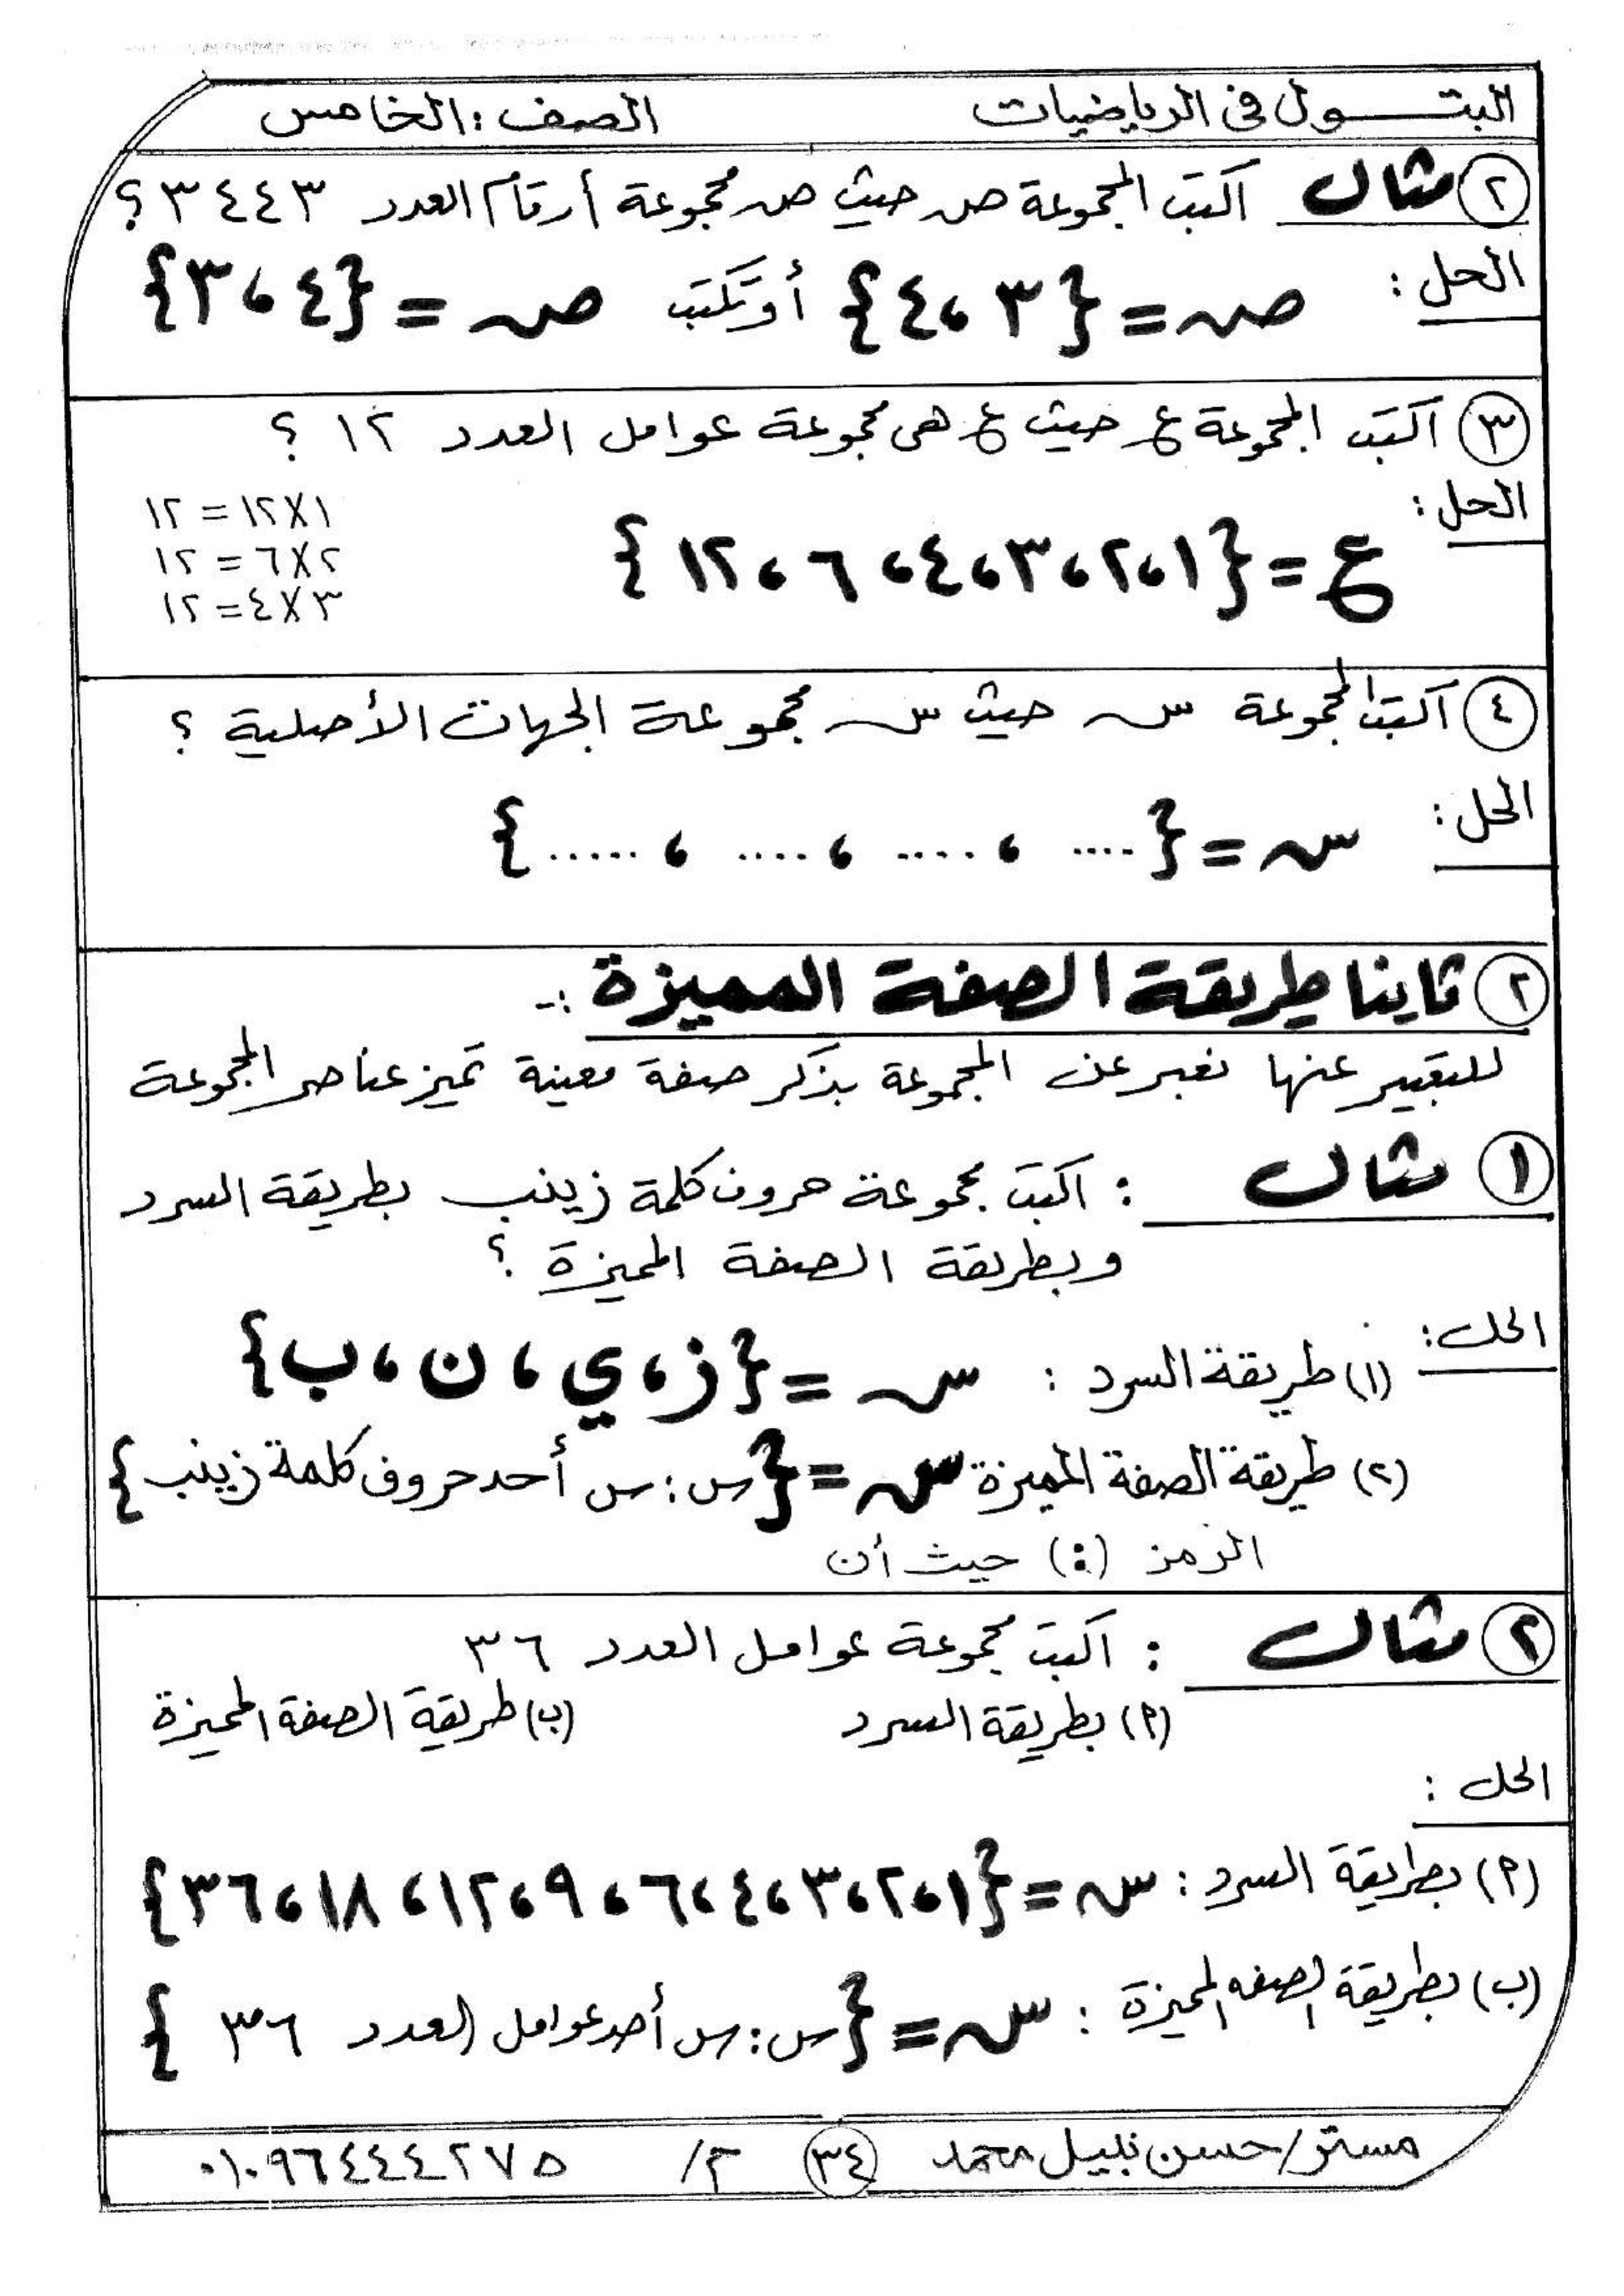 البتـــول في الرياضيات الصف : الخامس
٢ مثال اكتب المجموعة صـ حيث صـ مجموعة أرقام العدد ٣٤٤٣ ؟
الحل : صـ = {٣ ، ٤} أو تكتب صـ = {٤ ، ٣}
٣ اكتب المجموعة ع حيث ع هى مجموعة عوامل العدد ١٢ ؟
الحل :
ع = {١ ، ٢ ، ٣ ، ٤ ، ٦ ، ١٢}
١ × ١٢ = ١٢
٢ × ٦ = ١٢
٣ × ٤ = ١٢
٤ اكتب المجموعة سـ حيث سـ مجموعة الجهات الأصلية ؟
الحل : سـ = {.... ، .... ، .... ، .....}
٢ ثاينا طريقة الصفة المميزة :-
للتعبير عنها نعبر عن المجموعة بذكر صفة معينة تميز عناصر المجموعة
١ مثال : اكتب مجموعة حروف كلمة زينب بطريقة السرد
وبطريقة الصفة المميزة ؟
الحل : (١) طريقة السرد : سـ = {ز ، ي ، ن ، ب}
(٢) طريقة الصفة المميزة سـ = {س : س أحد حروف كلمة زينب}
الرمز (:) حيث أن
٢ مثال : اكتب مجموعة عوامل العدد ٣٦
(٢) بطريقة السرد (ب) طريقة الصفة المميزة
الحل :
(٢) بطريقة السرد : سـ = {١ ، ٢ ، ٣ ، ٤ ، ٦ ، ٩ ، ١٢ ، ١٨ ، ٣٦}
(ب) بطريقة الصفه المميزة : سـ = {س : س أحد عوامل العدد ٣٦}
مستر/حسن نبيل محمد ٣٤ م/ ٠١٠٩٦٤٤٤٢٧٥